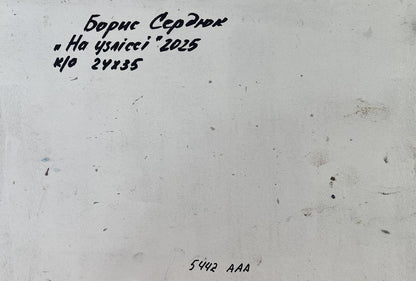 Борис Сердюк
"На узліссі" 2025
к/о 24х35
5442 ААА